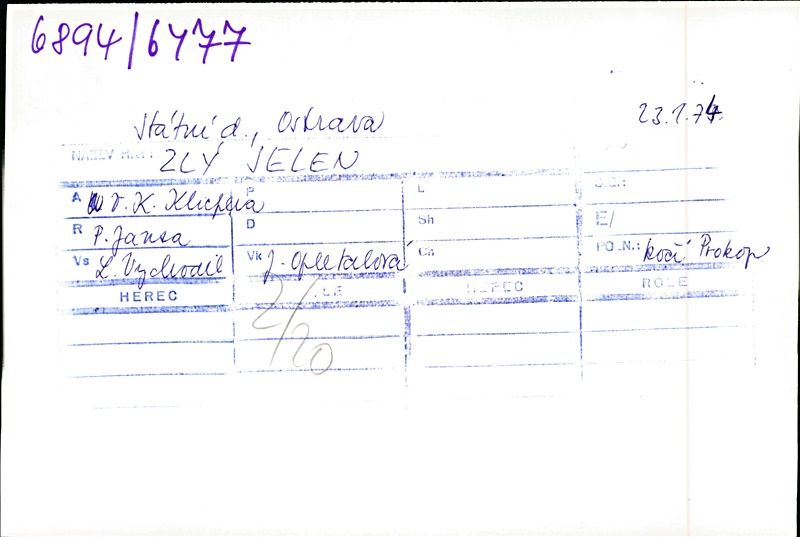 6894/6477
Státní d., Ostrava 23.1.74.
NÁZEV HRY: ZLÝ JELEN
A V. K. Klicpera P L
R P. Jansa D Sh E/
Vs L. Vychodil Vk J. Opletalová Ch POZN.: kočí Prokop
HEREC ROLE HEREC ROLE
2/20